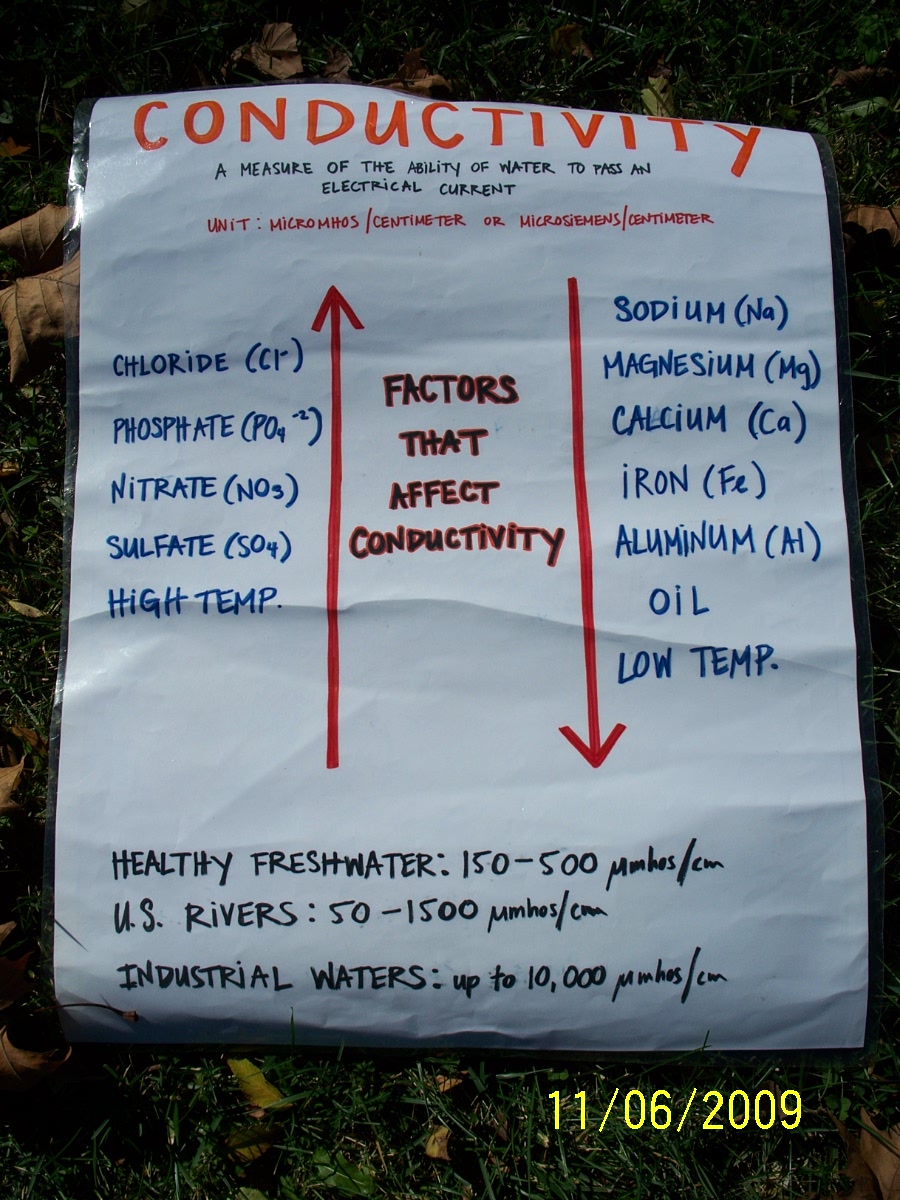 CONDUCTIVITY
A MEASURE OF THE ABILITY OF WATER TO PASS AN
ELECTRICAL CURRENT
UNIT: MICROMHOS/CENTIMETER OR MICROSIEMENS/CENTIMETER
CHLORIDE (Cl⁻)
PHOSPHATE (PO₄⁻²)
NITRATE (NO₃)
SULFATE (SO₄)
HIGH TEMP.
FACTORS
THAT
AFFECT
CONDUCTIVITY
SODIUM (Na)
MAGNESIUM (Mg)
CALCIUM (Ca)
IRON (Fe)
ALUMINUM (Al)
OIL
LOW TEMP.
HEALTHY FRESHWATER: 150-500 µmhos/cm
U.S. RIVERS: 50-1500 µmhos/cm
INDUSTRIAL WATERS: up to 10,000 µmhos/cm
11/06/2009